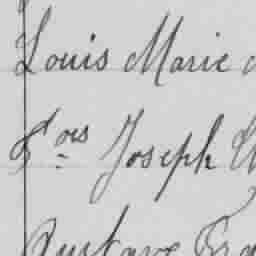 Louis Marie
Fçois Joseph
Gustave